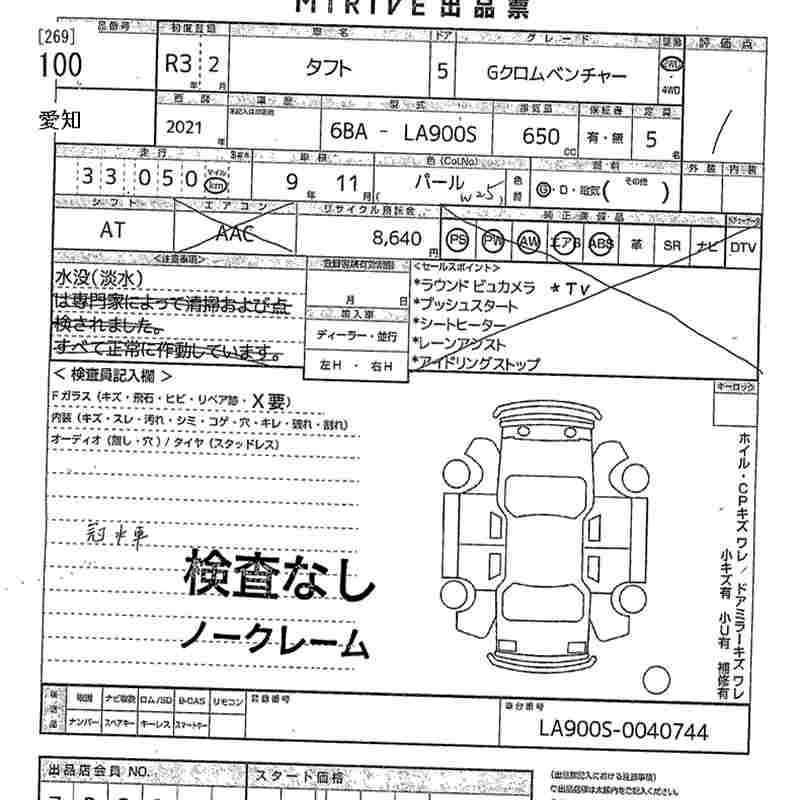 MIRIVE 出品票
品番号 初度登録 車名 ドア グレード 駆動 評価点
[269]
100 R3 年 2 月 タフト 5 Gクロムベンチャー 2WD 4WD
愛知
西暦 型式 排気量 保証書 定員
2021 年 6BA - LA900S 650 CC 有・無 5 名
走行 車検 色(Col.No) 燃料 外装 内装
33050 マイル km 9 年 11 月 パール W25 色替 G・D・電気( その他 )
シフト エアコン リサイクル預託金 純正装備品
AT AAC 8,640 円 PS PW AW エアB ABS 革 SR ナビ DTV
<注意事項> <セールスポイント>
水没(淡水)
は専門家によって清掃および点
検されました。
すべて正常に作動しています。
月 日
輸入車
ディーラー・並行
左H ・ 右H
*ラウンド ビュカメラ *TV
*プッシュスタート
*シートヒーター
*レーンアシスト
*アイドリングストップ
< 検査員記入欄 > キーロック
Fガラス(キズ・飛石・ヒビ・リペア跡・X要)
内装(キズ・スレ・汚れ・シミ・コゲ・穴・キレ・破れ・割れ)
オーディオ(無し・穴)/ タイヤ(スタッドレス)
冠水車
検査なし
ノークレーム
ホイル・CPキズワレ/ドアミラーキズワレ
小キズ有 小U有 補修有
後送品 取説 ナビ取説 ロム/SD B-CAS リモコン 登録番号 車台番号
ナンバー スペアキー キーレス スマートキー
LA900S-0040744
出品店会員 NO. スタート価格
(出品票記入における注意事項)
○出品店様は太線内をご記入ください。